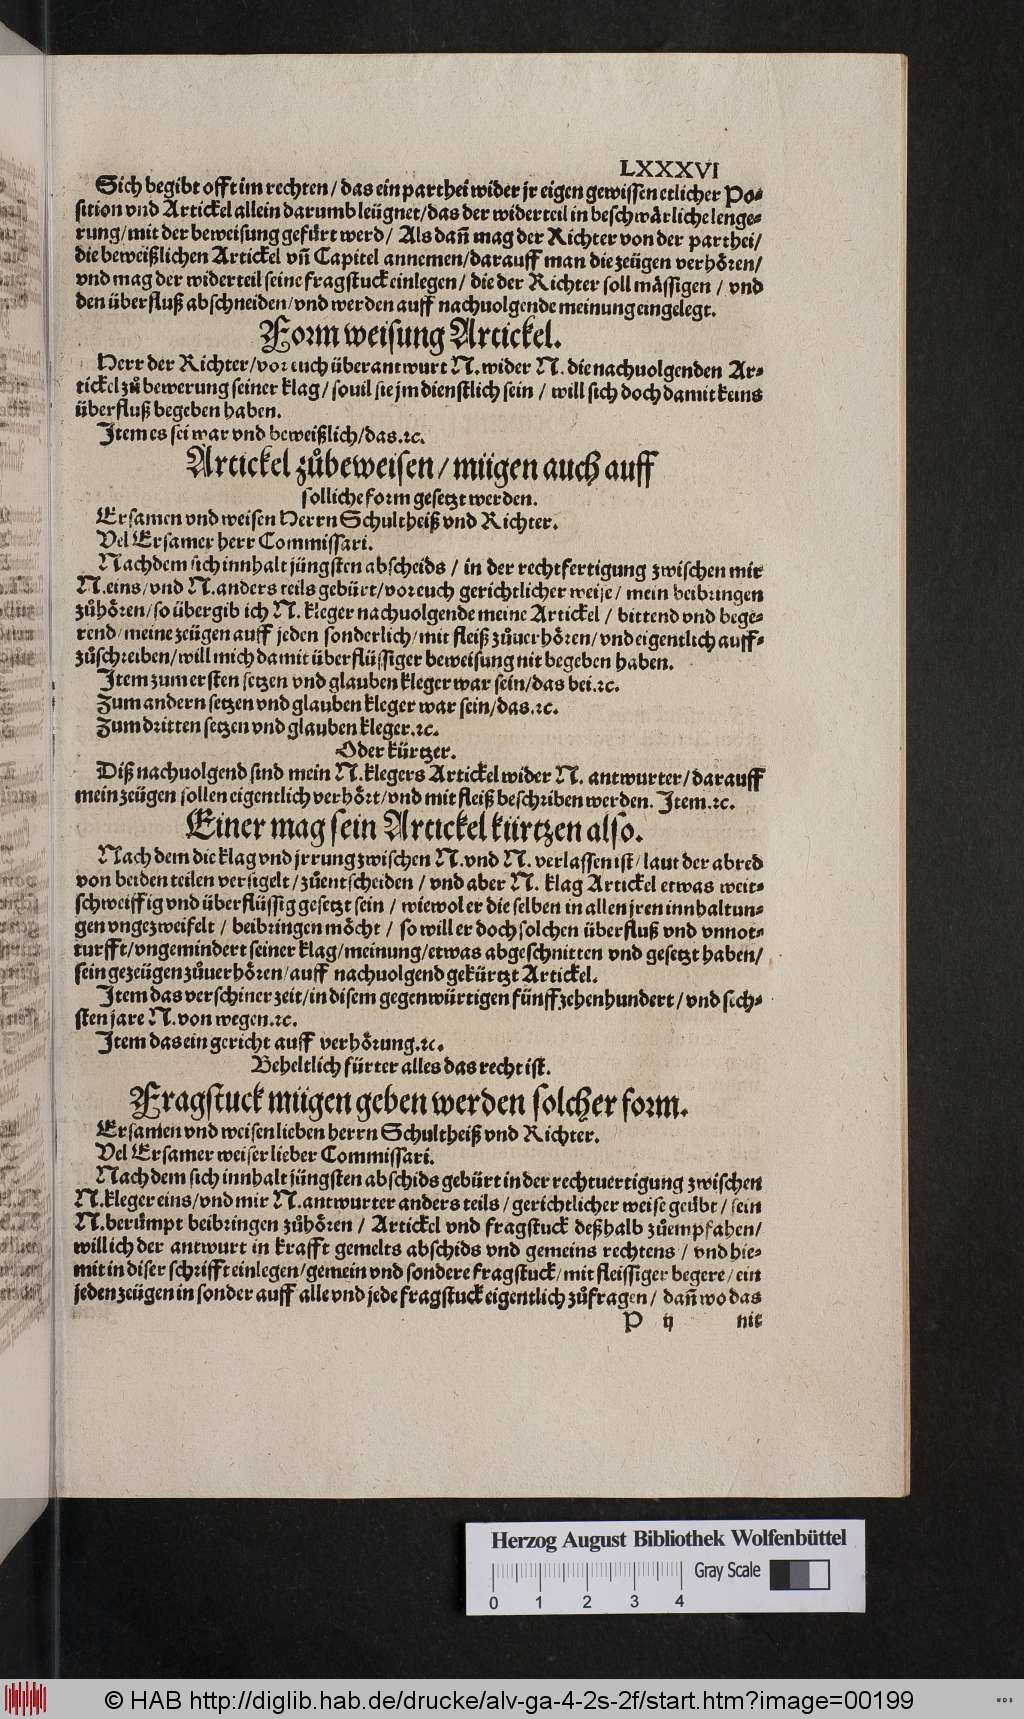 LXXXVI
Sich begibt offt im rechten / das ein parthei wider jr eigen gewissen etlicher Po⸗
sition vnd Artickel allein darumb leügnet / das der widerteil in beschwårliche lenge⸗
rung / mit der beweisung gefůrt werd / Als dañ mag der Richter von der parthei /
die beweißlichen Artickel vñ Capitel annemen / darauff man die zeügen verhőren /
vnd mag der widerteil seine fragstuck einlegen / die der Richter soll måssigen / vnd
den überfluß abschneiden / vnd werden auff nachuolgende meinung eingelegt.
Form weisung Artickel.
Herr der Richter / vor euch überantwurt N. wider N. die nachuolgenden Ar⸗
tickel zů bewerung seiner klag / souil sie jm dienstlich sein / will sich doch damit keins
überfluß begeben haben.
Item es sei war vnd beweißlich / das.ꝛc.
Artickel zůbeweisen / mügen auch auff
solliche form gesetzt werden.
Ersamen vnd weisen Herrn Schultheiß vnd Richter.
Vel Ersamer herr Commissari.
Nachdem sich innhalt jüngsten abscheids / in der rechtfertigung zwischen mir
N. eins / vnd N. anders teils gebürt / vor euch gerichtlicher weise / mein beibringen
zůhőren / so übergib ich N. kleger nachuolgende meine Artickel / bittend vnd bege⸗
rend / meine zeügen auff jeden sonderlich / mit fleiß zůuerhőren / vnd eigentlich auff⸗
zůschreiben / will mich damit überflüssiger beweisung nit begeben haben.
Item zum ersten setzen vnd glauben kleger war sein / das bei.ꝛc.
Zum andern setzen vnd glauben kleger war sein / das.ꝛc.
Zum dritten setzen vnd glauben kleger.ꝛc.
Oder kürtzer.
Diß nachuolgend sind mein N. klegers Artickel wider N. antwurter / darauff
mein zeügen sollen eigentlich verhőrt / vnd mit fleiß beschriben werden. Item.ꝛc.
Einer mag sein Artickel kürtzen also.
Nach dem die klag vnd jrrung zwischen N. vnd N. verlassen ist / laut der abred
von beiden teilen versigelt / zůentscheiden / vnd aber N. klag Artickel etwas weit⸗
schweiffig vnd überflüssig gesetzt sein / wiewol er die selben in allen jren innhaltun⸗
gen vngezweifelt / beibringen mőcht / so will er doch solchen überfluß vnd vnnot⸗
turfft / vngemindert seiner klag / meinung / etwas abgeschnitten vnd gesetzt haben /
sein gezeügen zůuerhőren / auff nachuolgend gekürtzt Artickel.
Item das verschiner zeit / in disem gegenwürtigen fünffzehenhundert / vnd sech⸗
sten jare N. von wegen.ꝛc.
Item das ein gericht auff verhőrung.ꝛc.
Beheltlich fürter alles das recht ist.
Fragstuck mügen geben werden solcher form.
Ersamen vnd weisen lieben herrn Schultheiß vnd Richter.
Vel Ersamer weiser lieber Commissari.
Nach dem sich innhalt jüngsten abschids gebürt in der rechtuertigung zwischen
N. kleger eins / vnd mir N. antwurter anders teils / gerichtlicher weise geübt / sein
N. berümpt beibringen zůhőren / Artickel vnd fragstuck deßhalb zůempfahen /
will ich der antwurt in krafft gemelts abschids vnd gemeins rechtens / vnd hie⸗
mit in diser schrifft einlegen / gemein vnd sondere fragstuck / mit fleissiger begere / ein
jeden zeügen in sonder auff alle vnd jede fragstuck eigentlich zůfragen / dañ wo das
P ij nit
Herzog August Bibliothek Wolfenbüttel
Gray Scale
0 1 2 3 4
© HAB http://diglib.hab.de/drucke/alv-ga-4-2s-2f/start.htm?image=00199